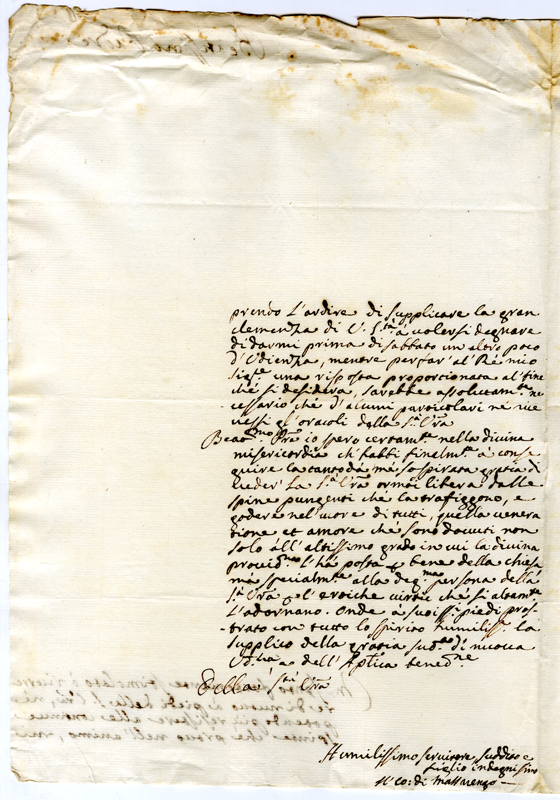 prendo L'ardire di supplicare la gran
clemenza di V. S.tà à volersi degnare
di darmi prima di sabbato un altro poco
d'Udienza, mentre per far' al Ré mio
Sig.re una risposta proporcionata al fine
ché si desidera, sarebbe assolutam.te ne
cessario ché d'alcuni particolari ne rice
vessi gl'oracoli della S.tà Vrã
Beat.mo Prẽ io spero certam.te nella divina
misericordia ch'habbi finalm.te à conse
guire la tanto da mé sospirata gratia di
veder' La S.tà Vrã ormai libera dalle
spine pungenti ché la trafiggono, e
godere nel cuore di tutti, quella venera
tione et amore ché sono dovuti non
solo all'altissimo grado in cui la divina
provid.za l'há posta p bene della chiesa
mà specialm.te alla deg.ma persona della
S.tà Vrã e l'eroiche virtù ché si altam.te
L'adornano. Onde à suoi SS.mi piedi pros
trato con tutto lo spirito humiliss.o la
supplico della gratia sud.ta di nuova
Ud.za e dell'Aptica bened.ne
Della S.tà Vrã
Humilissimo servitore suddito e
figlio indegnissimo
Il Co: di Massarengo